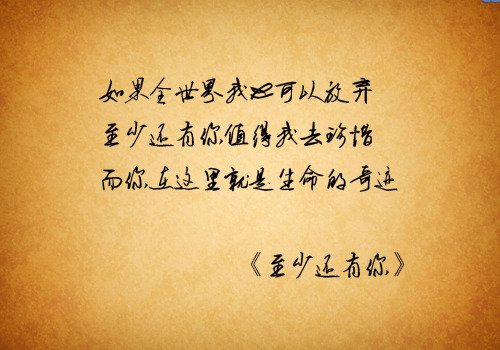 如果全世界我也可以放弃
至少还有你值得我去珍惜
而你在这里就是生命的奇迹
《至少还有你》